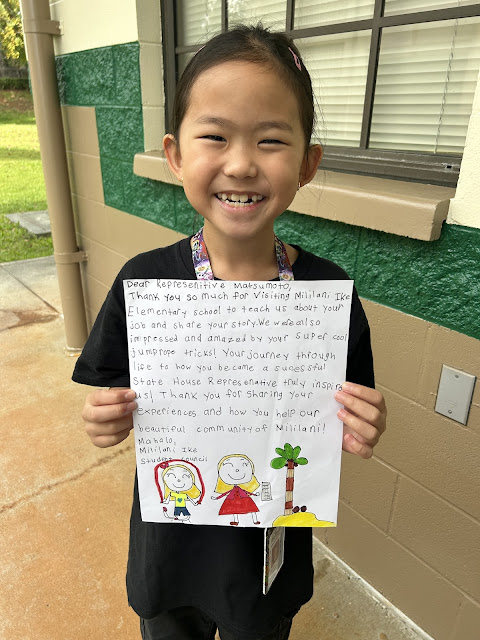 Dear Represenitive Matsumoto,
Thank you so much for Visiting Mililani Ike
Elementary school to teach us about your
job and share your story. We were also
impressed and amazed by your super cool
jumprope tricks! Your journey through
life to how you became a sucessful
State House Represenative truly inspire
us! Thank you for sharing your
experiences and how you help our
beautiful community of Mililani!
Mahalo,
Mililani Ike
Student Council